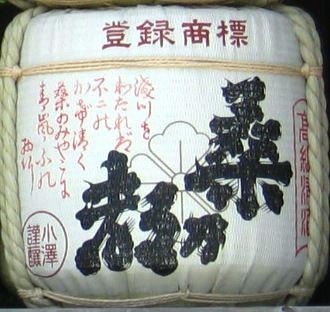 登録商標
高級清酒
桑乃都
浅川を
わたれば
不二の
かげ清く
桑のみやこに
青嵐ふく
西行
小澤
謹醸